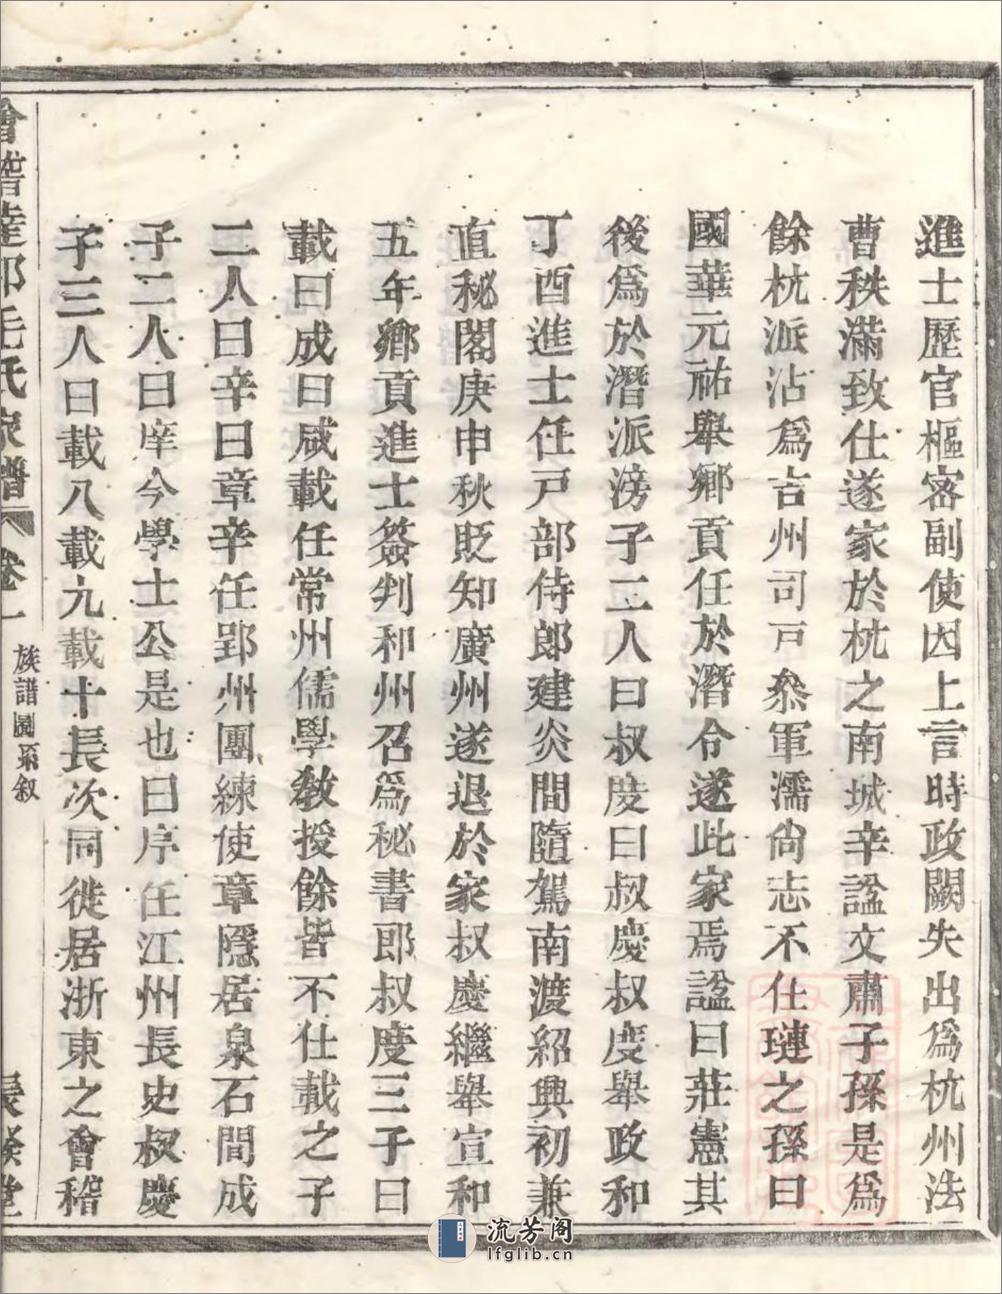 進士歷官樞密副使因上言時政闕失出爲杭州法
曹秩滿致仕遂家於杭之南城辛諡文肅子孫是爲
餘杭派沾爲吉州司戸叅軍濡尙志不仕璉之孫曰
國華元祐舉鄉貢任於潛令遂此家焉諡曰莊憲其
後爲於潛派滂子二人曰叔度曰叔慶叔度舉政和
丁酉進士任戸部侍郎建炎間隨駕南渡紹興初兼
直秘閣庚申秋貶知廣州遂退於家叔慶繼舉宣和
五年鄉貢進士簽判和州召爲秘書郎叔度三子曰
載曰成曰咸載任常州儒學教授餘皆不仕載之子
二人曰辛曰章辛任郢州團練使章隱居泉石間成
子二人曰庠今學士公是也曰序任江州長史叔慶
子三人曰載八載九載十長次同徙居浙東之會稽
會稽達郭毛氏家譜 卷一 族譜圖系叙
流芳阁
lfglib.cn